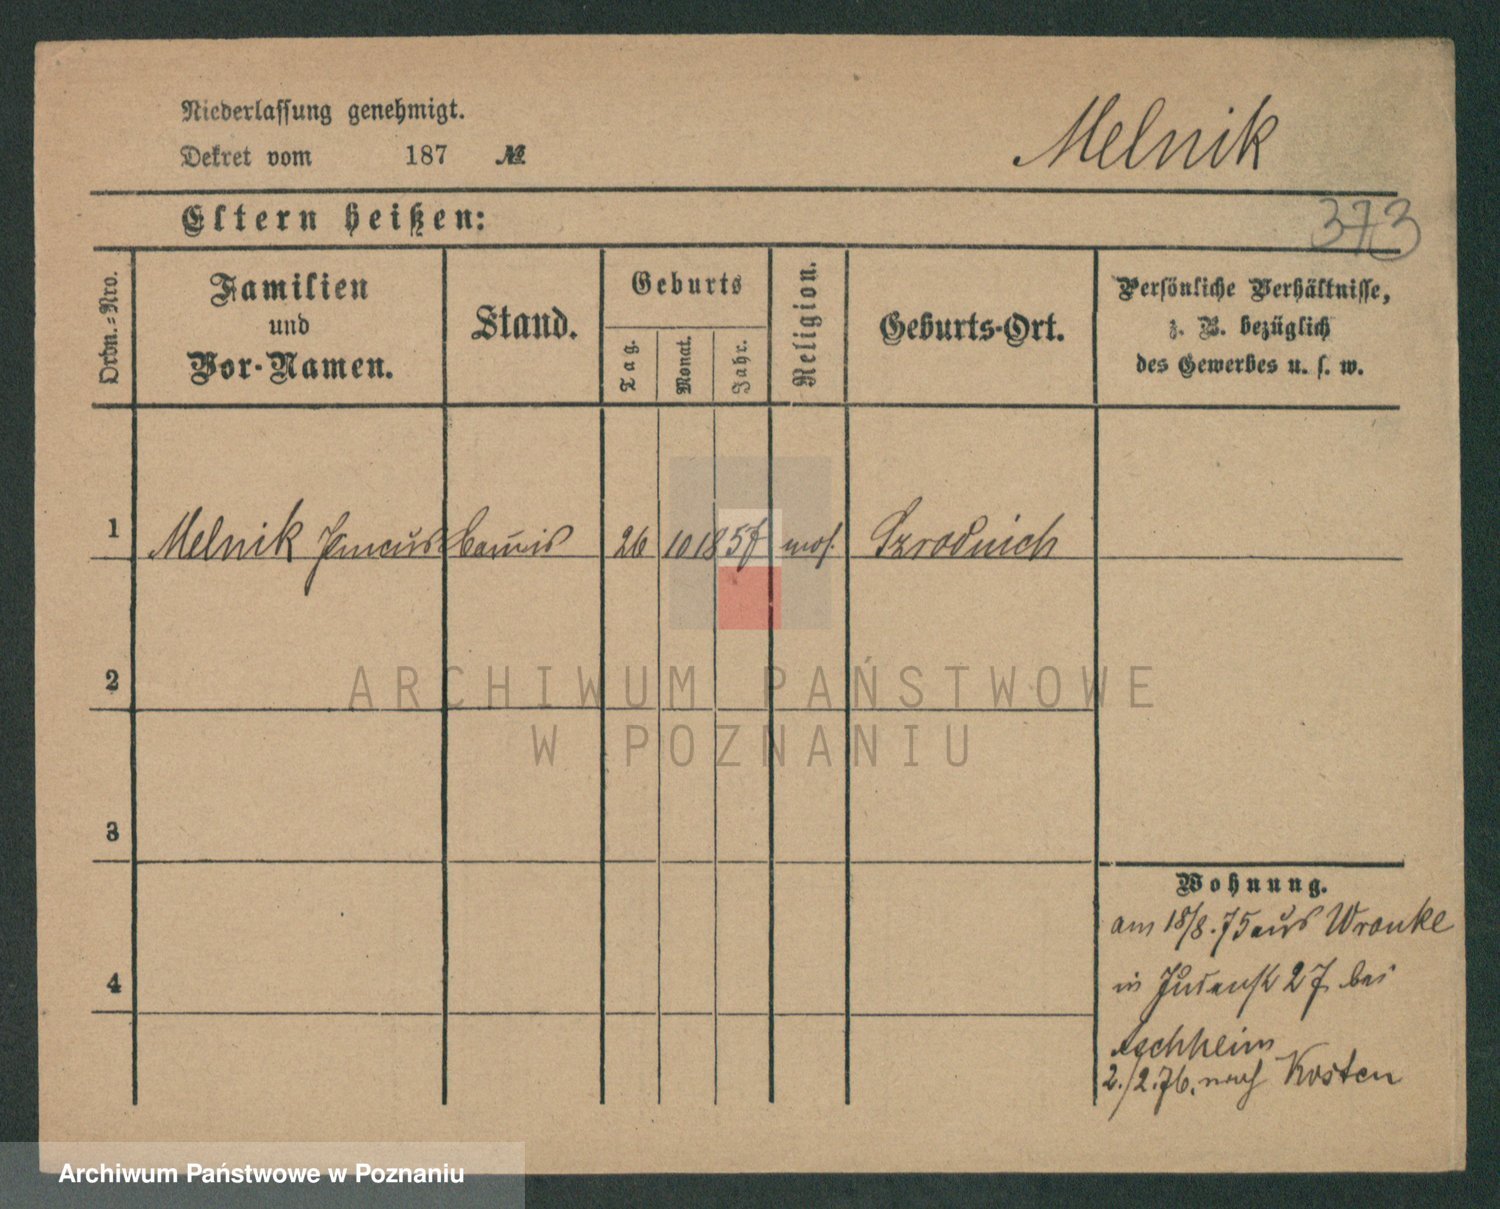 Niederlassung genehmigt.
Dekret vom 187 №
Melnik
373
Eltern heißen:
Ordn.-Nro.
Familien
und
Vor-Namen.
Stand.
Geburts
Tag.
Monat.
Jahr.
Religion.
Geburts-Ort.
Persönliche Verhältnisse,
z. B. bezüglich
des Gewerbes u. s. w.
1 Melnik 26 10 1857 mos.
2
3
4
Wohnung.
am 18/8.75 aus Wronke
in Judenstr 27 bei
Aschheim
2./2.76. nach Kosten
ARCHIWUM PAŃSTWOWE
W POZNANIU
Archiwum Państwowe w Poznaniu